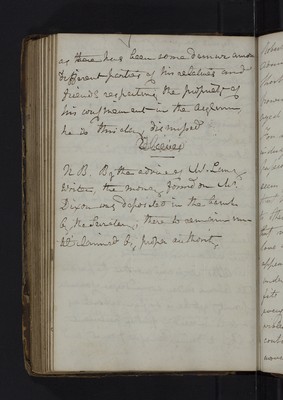 as there has been some demur among
different parties of his relatives and
friends respecting the propriety of
his confinement in the Asylum
he is this day dismissed
Relieved
N.B. By the advice of Mr.
Writer, the money found on Mr.
Dixon was deposited in the bank
by the , there to remain un
til claimed by proper authority.